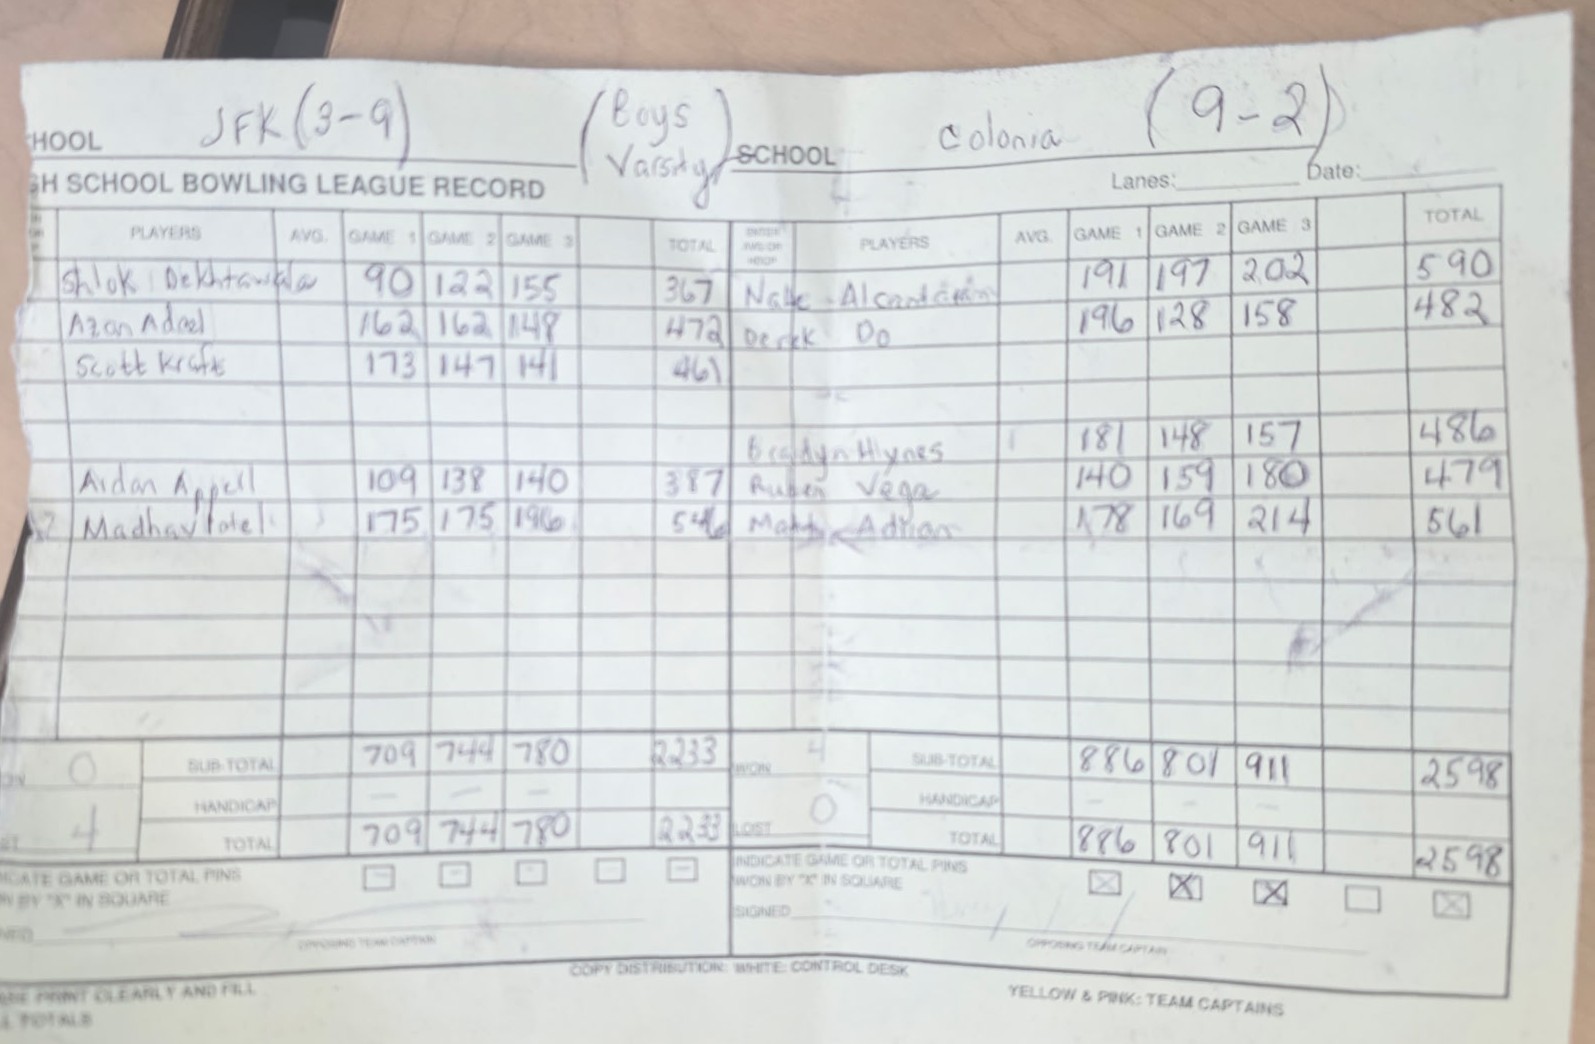 HOOL JFK (3-9) (Boys Varsity) SCHOOL Colonia (9-2)
H SCHOOL BOWLING LEAGUE RECORD Lanes: Date:
PLAYERS AVG. GAME 1 GAME 2 GAME 3 TOTAL PLAYERS AVG. GAME 1 GAME 2 GAME 3 TOTAL
Shlok 90 122 155 367 191 197 202 590
Azan 162 162 148 472 Derek Do 196 128 158 482
Scott Krafts 173 147 141 461
Hynes 181 148 157 486
Aidan Appell 109 138 140 387 Ruben Vega 140 159 180 479
Madhav Patel 175 175 196 546 Adrian 178 169 214 561
0 SUB-TOTAL 709 744 780 2233 WON 4 SUB-TOTAL 886 801 911 2598
HANDICAP - - - HANDICAP - - -
4 TOTAL 709 744 780 2233 LOST 0 TOTAL 886 801 911 2598
CATE GAME OR TOTAL PINS INDICATE GAME OR TOTAL PINS
BY "X" IN SQUARE WON BY "X" IN SQUARE
SIGNED
OPPOSING TEAM CAPTAIN OPPOSING TEAM CAPTAIN
COPY DISTRIBUTION: WHITE: CONTROL DESK
PRINT CLEARLY AND FILL YELLOW & PINK: TEAM CAPTAINS
TOTALS